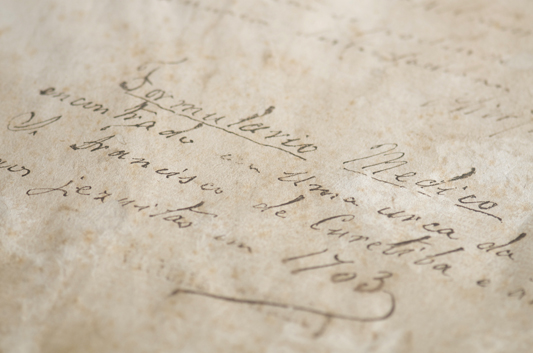 Formulario Medico
encontrado em uma arca da
S. Francisco de Curetiba e
nos Jezuitas em 1703